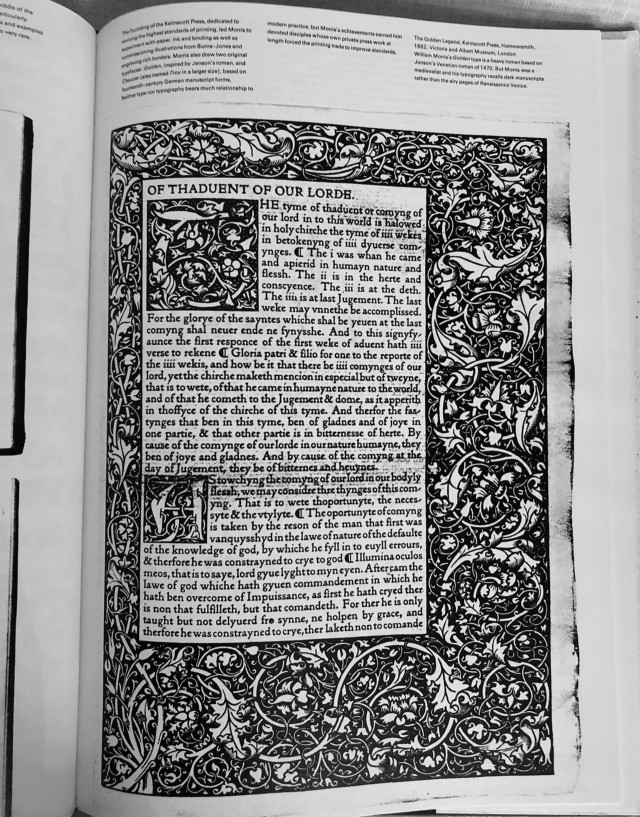 of the
and examples
very rare.
The founding of the Kelmscott Press, dedicated to
reviving the highest standards of printing, led Morris to
experiment with paper, ink and binding as well as
commissioning illustrations from Burne-Jones and
engraving rich borders. Morris also drew two original
typefaces: Golden, inspired by Jenson's roman, and
Chaucer (also named Troy in a larger size), based on
fourteenth-century German manuscript forms.
Neither type nor typography bears much relationship to
modern practice, but Morris's achievements earned him
devoted disciples whose own private press work at
length forced the printing trade to improve standards.
The Golden Legend, Kelmscott Press, Hammersmith,
1892. Victoria and Albert Museum, London.
William Morris's Golden type is a heavy roman based on
Jenson's Venetian roman of 1470. But Morris was a
medievalist and his typography recalls dark manuscripts
rather than the airy pages of Renaissance Venice.
OF THADUENT OF OUR LORDE.
THE tyme of thaduent or comyng of
our lord in to this world is halowed
in holy chirche the tyme of iiii wekes
in betokenyng of iiii dyuerse com-
ynges. ¶ The i was whan he came
and apierid in humayn nature and
flessh. The ii is in the herte and
conscyence. The iii is at the deth.
The iiii is at last Jugement. The last
weke may vnnethe be accomplissed.
For the glorye of the sayntes whiche shal be yeuen at the last
comyng shal neuer ende ne fynysshe. And to this signyfy-
aunce the first responce of the first weke of aduent hath iiii
verse to rekene ¶ Gloria patri & filio for one to the reporte of
the iiii wekis, and how be it that there be iiii comynges of our
lord, yet the chirche maketh mencion in especial but of tweyne,
that is to wete, of that he came in humayne nature to the world,
and of that he cometh to the Jugement & dome, as it apperith
in thoffyce of the chirche of this tyme. And therfor the fas-
tynges that ben in this tyme, ben of gladnes and of joye in
one partie, & that other partie is in bitternesse of herte. By
cause of the comynge of our lorde in our nature humayne, they
ben of joye and gladnes. And by cause of the comyng at the
day of Jugement, they be of bitternes and heuynes.
AS towchyng the comyng of our lord in our bodyly
flessh, we may considere thre thynges of this com-
yng. That is to wete thoportunyte, the neces-
syte & the vtylyte. ¶ The oportunyte of comyng
is taken by the reson of the man that first was
vanquysshyd in the lawe of nature of the defaulte
of the knowledge of god, by whiche he fyll in to euyll errours,
& therfore he was constrayned to crye to god ¶ Illumina oculos
meos, that is to saye, lord gyue lyght to myn eyen. After cam the
lawe of god whiche hath gyuen commandement in which he
hath ben overcome of Impuissance, as first he hath cryed ther
is non that fulfilleth, but that comandeth. For ther he is only
taught but not delyuerd fro synne, ne holpen by grace, and
therfore he was constrayned to crye, ther lakethnon to comande